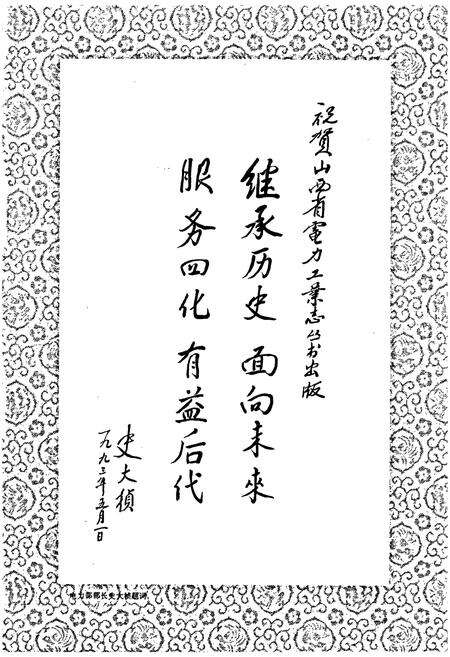 祝贺山西省電力工业志丛书出版
继承历史 面向未來
服务四化 有益后代
史大桢
一九九三年五月一日
电力部部长史大桢题词